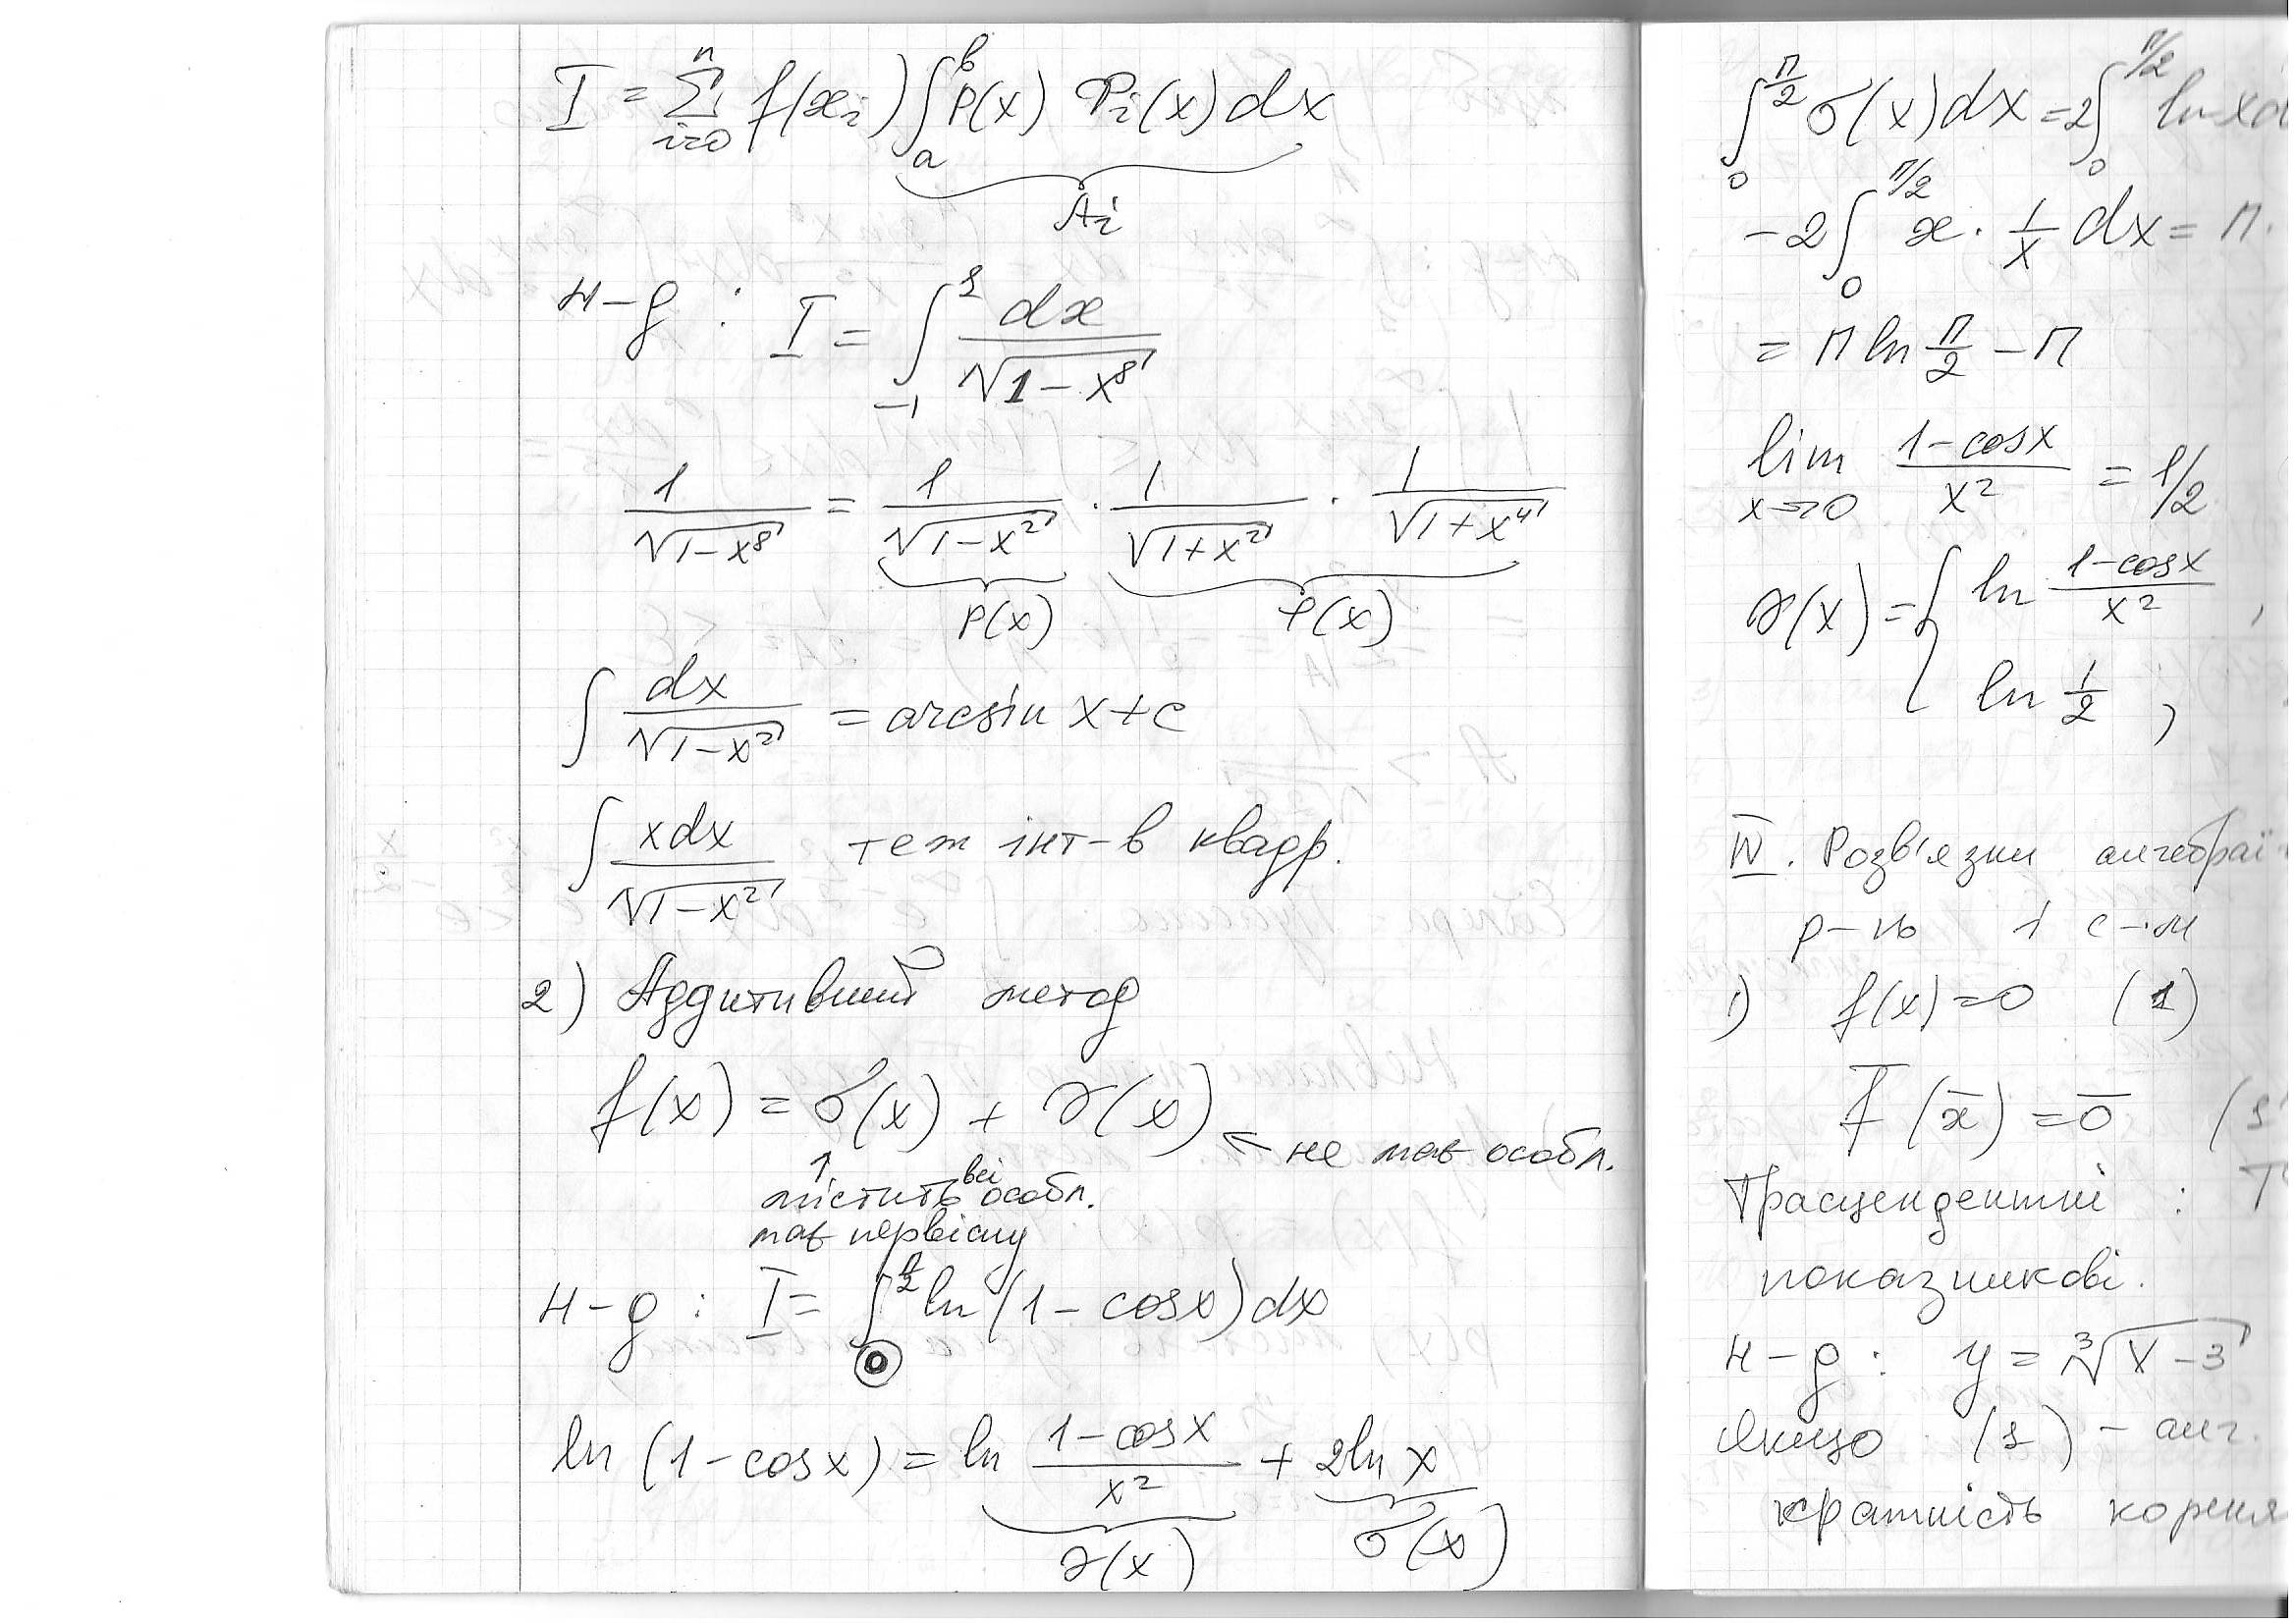 I = Σ_{i=0}^{n} f(x_i) ∫_a^b P(x) P_i(x) dx
A_i
н-д : I = ∫_{-1}^{1} dx / √(1-x⁸)
1/√(1-x⁸) = 1/√(1-x²) · 1/√(1+x²) · 1/√(1+x⁴)
P(x) f(x)
∫ dx/√(1-x²) = arcsin x + c
∫ xdx/√(1-x²) теж інт-в квадр.
2) Аддитивний метод
f(x) = σ(x) + γ(x) ← не має особл.
↑
містить всі особл.
має первісну
н-д : I = ∫_0^{π/2} ln(1-cosx)dx
ln(1-cosx) = ln (1-cosx)/x² + 2ln x
γ(x) σ(x)
∫_0^{π/2} σ(x)dx = 2∫_0^{π/2} ln x d
-2∫_0^{π/2} x · 1/x dx = π ·
= π ln π/2 - π
lim_{x→0} (1-cosx)/x² = 1/2
γ(x) = { ln (1-cosx)/x² ,
ln 1/2 ,
IV. Розв'язки алгебраї
р-нь і с-м
1) f(x) = 0 (1)
F̄(x̄) = 0̄ (1'
Трасцендентні : Т
показникові.
н-д : y = ³√(x-3)
Якщо (1) - алг.
кратність кореня